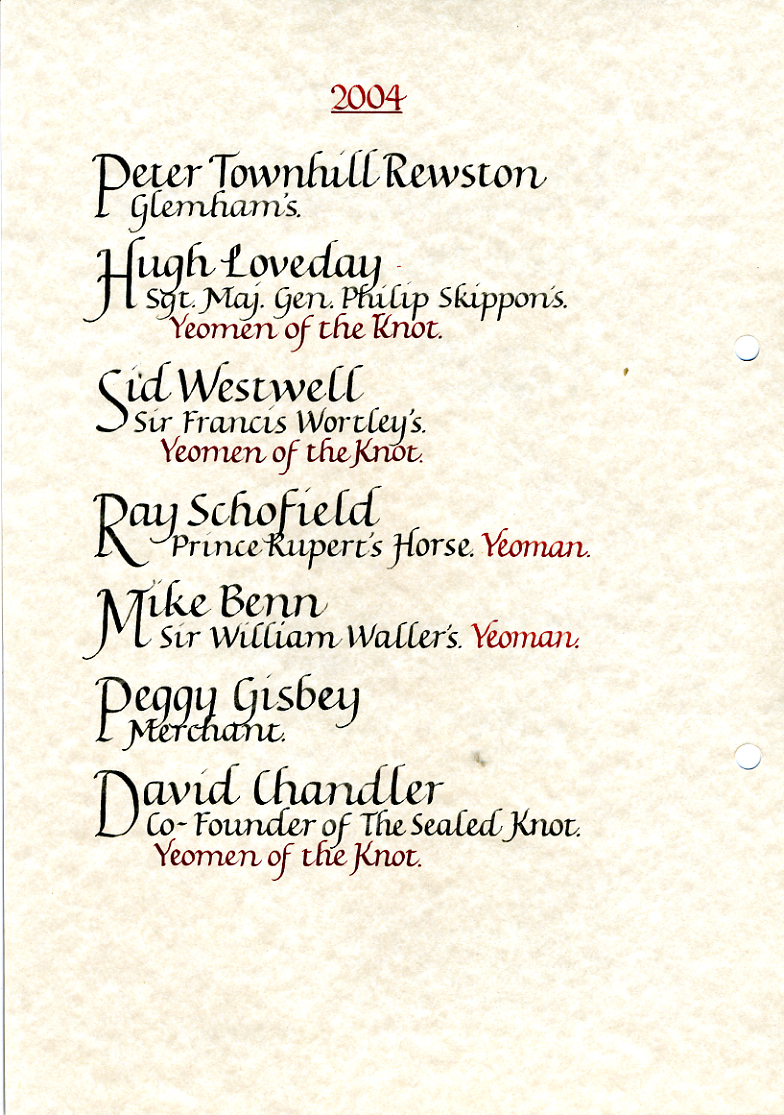 2004
Peter Townhill Rewston
Glemham's.
Hugh Loveday
Sgt. Maj. Gen. Philip Skippon's.
Yeomen of the Knot.
Sid Westwell
Sir Francis Wortley's.
Yeomen of the Knot.
Ray Schofield
Prince Rupert's Horse. Yeoman.
Mike Benn
Sir William Waller's. Yeoman.
Peggy Gisbey
Merchant.
David Chandler
Co-Founder of The Sealed Knot.
Yeomen of the Knot.